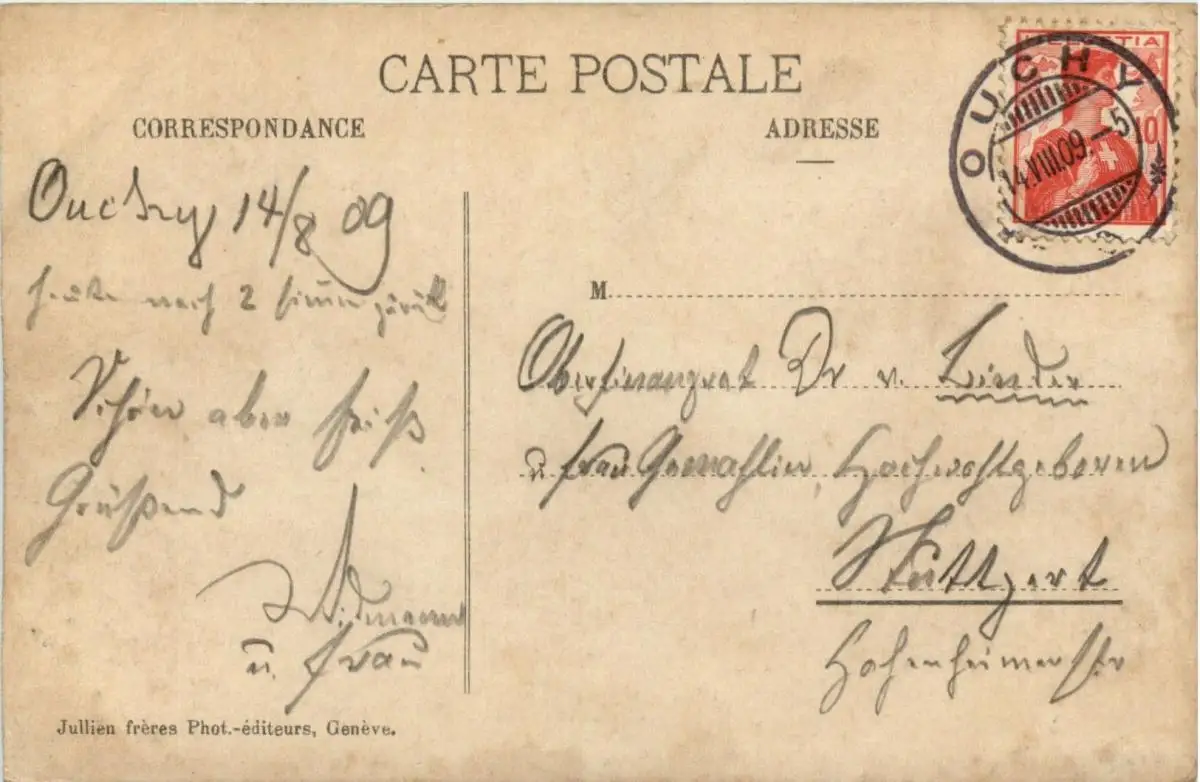 CARTE POSTALE
CORRESPONDANCE
ADRESSE
HELVETIA
10
OUCHY
14.VIII.09.-5
Ouchy 14/8 09
heute nach 2 zurück
Schön aber heiß
Grüßend
Widmann
u. Frau
M
Oberfinanzrat Dr v. Linden
u. Frau Gemahlin, Hochwohlgeboren
Stuttgart
Hohenheimerstr
Jullien frères Phot.-éditeurs, Genève.